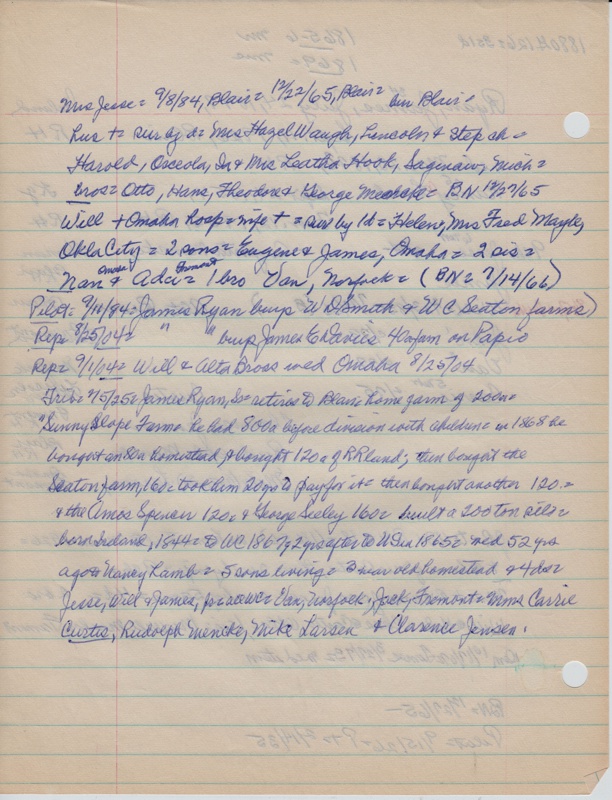 Mrs Jesse = 9/8/84, Blair = 12/22/65, Blair = bur Blair =
hus + = sur by d = Mrs Hazel Waugh, Lincoln & step ch =
Harold, Osceola, In & Mrs Leatha Hook, Saginaw, Mich =
bros = Otto, Hans, Theodore & George Mencke = BN 12/27/65
Will + Omaha hosp = wife + = sur by 1d = Helen, Mrs Fred
Okla City = 2 sons = Eugene & James, Omaha = 2 sis =
Nan Omaha & Ada = Fremont 1 bro Van, Norfock = (BN = 7/14/66)
Pilot = 9/10/84 = James Ryan buys W D Smith & W C Seaton farms)
Rep = 8/25/04 = " " buys James E Davies 40a farm on Papio
Rep = 9/1/04 = Will & Alta Bross wed Omaha 8/25/04
Trib = 9/5/25 = James Ryan, Sr = retires to Blair = home farm of 200a =
"Sunny Slope Farm = he had 800a before division with children = in 1868 he
bought an 80a homestead & bought 120a of RR land; then bought the
Seaton farm, 160a took him 20 yrs to pay for it = then bought another 120 =
& the Amos Spencer 120a & George Seeley 160a built a 200 ton silo =
born Ireland, 1844 = to WC 1867, 2 yrs after to US in 1865 = wed 52 yrs
ago to Nancy Lamb = 5 sons living = 3 near old homestead & 4 das
Jesse, Will & James, Van, Norfock, Jack, Fremont = Mmes Carrie
Curtis, Rudolph Mencke, Mike Larsen & Clarence Jensen.